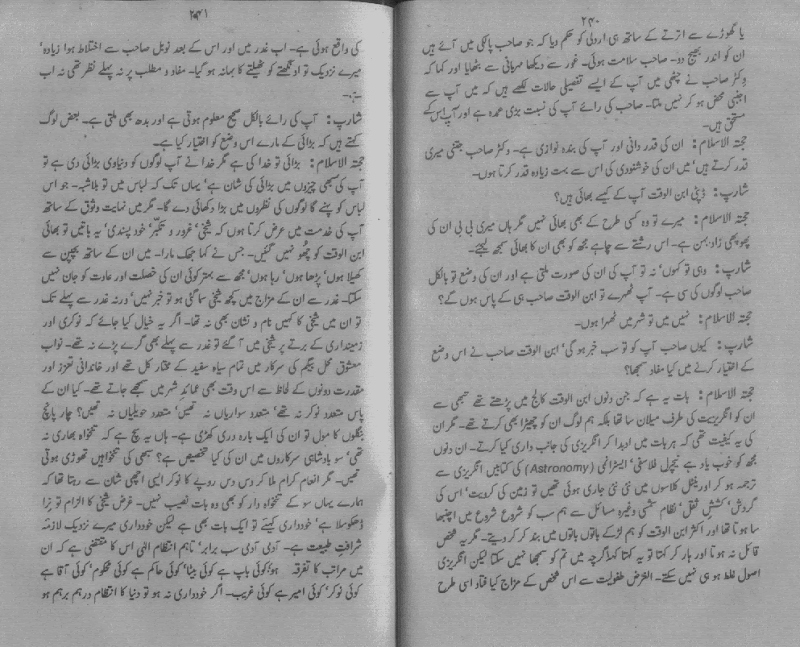 ۲۴۰
یا گھوڑے سے اترنے کے ساتھ ہی اردلی کو حکم دیا کہ جو صاحب پالکی میں آئے ہیں
ان کو اندر بھیج دو۔ صاحب سلامت ہوئی۔ غور سے دیکھا مہربانی سے بٹھایا اور کہا کہ
وکٹر صاحب نے چٹھی میں آپ کے ایسے تفصیلی حالات لکھے ہیں کہ میں آپ سے
اجنبی محض ہو کر نہیں ملتا۔ صاحب کی رائے آپ کی نسبت بڑی عمدہ ہے اور آپ اس کے
مستحق ہیں۔
حجتہ الاسلام: ان کی قدر دانی اور آپ کی بندہ نوازی ہے۔ وکٹر صاحب جتنی میری
قدر کرتے ہیں' میں ان کی خوشنودی کی اس سے بہت زیادہ قدر کرتا ہوں۔
شارپ: ڈپٹی ابن الوقت آپ کے کیسے بھائی ہیں؟
حجتہ الاسلام: میرے تو وہ کسی طرح کے بھی بھائی نہیں مگر ہاں میری بی بی ان کی
پھوپھی زاد بہن ہے۔ اس رشتے سے چاہے مجھ کو بھی ان کا بھائی سمجھ لیجئے۔
شارپ: وہی تو کہوں' نہ تو آپ کی ان کی صورت ملتی ہے اور ان کی وضع تو بالکل
صاحب لوگوں کی سی ہے۔ آپ ٹھہرے تو ابن الوقت صاحب ہی کے پاس ہوں گے؟
حجتہ الاسلام: نہیں میں تو شہر میں ٹھہرا ہوں۔
شارپ: کیوں صاحب آپ کو تو سب خبر ہو گی' ابن الوقت صاحب نے اس وضع
کے اختیار کرنے میں کیا مفاد سمجھا؟
حجتہ الاسلام: بات یہ ہے کہ جن دنوں ابن الوقت کالج میں پڑھتے تھے تبھی سے
ان کو انگریزیت کی طرف میلان سا تھا بلکہ ہم لوگ ان کو چھیڑا بھی کرتے تھے۔ مگر ان
کی یہ کیفیت تھی کہ ہر بات میں اویدا کر انگریزی کی جانب داری کیا کرتے۔ ان دنوں
مجھ کو خوب یاد ہے نیچرلی فلاسفی' ایسٹرانمی (Astronomy) کی کتابیں انگریزی سے
ترجمہ ہو کر اورینٹل کلاسوں میں نئی نئی جاری ہوئی تھیں تو زمین کی کرویت' اس کی
گردش' کشش ثقل' نظام شمسی وغیرہ مسائل سے ہم سب کو شروع شروع میں اچنبھا
سا ہوتا تھا اور اکثر ابن الوقت کو ہم لڑکے باتوں باتوں میں بند کر کر دیتے۔ مگر یہ شخص
قائل نہ ہوتا اور ہار کر کہتا تو یہ کہتا کہ اگرچہ میں تم کو سمجھا نہیں سکتا لیکن انگریزی
اصول غلط ہو ہی نہیں سکتے۔ الغرض طفولیت سے اس شخص کے مزاج کیا افتاد اسی طرح
۲۴۱
کی واقع ہوئی ہے۔ اب غدر میں اور اس کے بعد نوبل صاحب سے اختلاط ہوا زیادہ'
میرے نزدیک تو اونگھتے کو ٹھیلتے کا بہانہ ہو گیا۔ مفاد و مطلب پر نہ پہلے نظر تھی نہ اب
ہے۔
شارپ: آپ کی رائے بالکل صحیح معلوم ہوتی ہے اور بدھ بھی ملتی ہے۔ بعض لوگ
کہتے ہیں کہ بڑائی کے مارے اس وضع کو اختیار کیا ہے۔
حجتہ الاسلام: بڑائی تو خدا کی ہے مگر خدا نے آپ لوگوں کو دنیاوی بڑائی دی ہے تو
آپ کی سبھی چیزوں میں بڑائی کی شان ہے' یہاں تک کہ لباس میں تو بلاشبہ۔ جو اس
لباس کو پہنے گا لوگوں کی نظروں میں بڑا دکھائی دے گا۔ مگر میں نہایت وثوق کے ساتھ
آپ کی خدمت میں عرض کرتا ہوں کہ شیخی' غرور و تکبر' خود پسندی' یہ باتیں تو بھائی
ابن الوقت کو چھو نہیں گئیں۔ جس نے کہا جھک مارا۔ میں ان کے ساتھ بچپن سے
کھیلا ہوں' پڑھا ہوں' رہا ہوں' مجھ سے بہتر کوئی ان کی خصلت اور عادت کو جان نہیں
سکتا۔ غدر سے ان کے مزاج میں کچھ شیخی سما گئی ہو تو خبر نہیں' ورنہ غدر سے پہلے تک
تو ان میں شیخی کا کہیں نام و نشان بھی نہ تھا۔ اگر یہ خیال کیا جائے کہ نوکری اور
زمینداری کے برتے پر شیخی میں آ گئے تو غدر سے پہلے بھی گرے پڑے نہ تھے۔ نواب
معشوق محل بیگم کی سرکار میں تمام سیاہ سفید کے مختار کل تھے اور خاندانی تعزز اور
مقدرت دونوں کے لحاظ سے اس وقت بھی عمائد شہر میں سمجھے جاتے تھے۔ کیا ان کے
پاس متعدد نوکر نہ تھے' متعدد سواریاں نہ تھیں' متعدد حویلیاں نہ تھیں؟ چار پانچ
بنگلوں کا مول تو ان کی ایک بارہ دری کھڑی ہے۔ ہاں یہ سچ ہے کہ تنخواہ بھاری نہ
تھی' سو بادشاہی سرکاروں میں ان کی کیا تخصیص ہے؟ سبھی کی تنخواہیں تھوڑی ہوتی
تھیں۔ مگر انعام کرام ملا کر دس دس روپے کا نوکر ایسی اچھی شان سے رہتا تھا کہ
ہمارے یہاں سو کے تنخواہ دار کو بھی وہ بات نصیب نہیں۔ غرض شیخی کا الزام تو نرا
ڈھکوسلا ہے' خودداری کہئے تو ایک بات بھی ہے لیکن خودداری میرے نزدیک لازمہ
شرافت طبیعت ہے۔ آدمی آدمی سب برابر' تاہم انتظام الٰہی اس کا متقتضی ہے کہ ان
میں مراتب کا تفرقہ ہو' کوئی باپ ہے کوئی بیٹا' کوئی حاکم ہے کوئی محکوم' کوئی آقا ہے
کوئی نوکر' کوئی امیر ہے کوئی غریب۔ اگر خودداری نہ ہو تو دنیا کا انتظام درہم برہم ہو